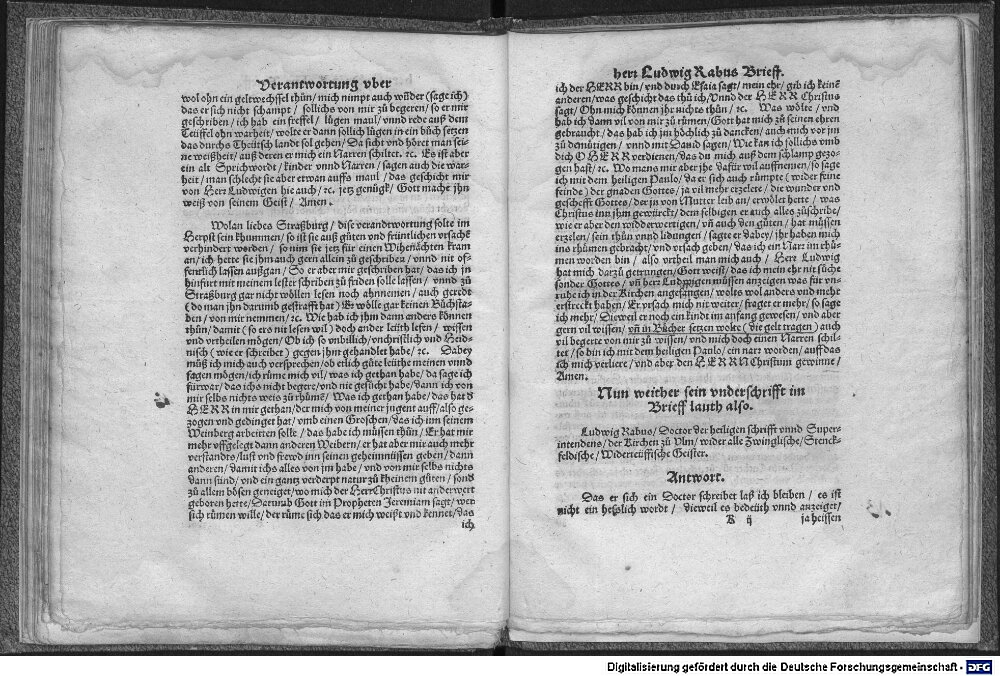 Verantwortung vber
wol ohn ein geltwechssel thün/ mich nimpt auch wūder (sage ich)
das er sich nicht schampt / söllichs von mir zů begeren/ so er mir
geschriben / ich hab ein freffel / lügen maul/ vnnd rede auß dem
Teüffel ohn warheit/ wolte er dann söllich lügen in ein bůch setzen
das durchs Theütsch landt sol gehen/ Da sicht vnd höret man sei-
ne weißheit/ auß deren er mich ein Narren schiltet. ꝛc. Es ist aber
ein alt Sprichwordt / kinder vnnd Narren / sagen auch die war-
heit / man schlecht sie aber etwan auffs maul / das geschicht mir
von Herr Ludwigen hie auch/ ꝛc. jetz genůgk/ Gott mache jhn
weiß von seinem Geist / Amen.
Wolan liebes Straßburg / dise verandtwortung solte im
Herpst sein khummen/ so ist sie auß güten vnd früntlichen vrsachē
verhindert worden / so nim sie jetz für einen Wihenächten kram
an/ ich hette sie jhm auch gern allein zů geschriben / vnnd nit of-
fentlich lassen außgan/ So er aber mir geschriben hat/ das ich jn
hinfürt mit meinem lester schriben zů friden solle lassen/ vnnd zů
Straßburg gar nicht wöllen lesen noch ahnnemen/ auch geredt
(do man jhn darumb gestrafft hat) Er wölle gar keinen Büchsta-
ben / von mir nemmen/ ꝛc. Wie hab ich jhm dann andere können
thůn/ damit (so ers nit lesen wil) doch ander leüth lesen / wissen
vnd vrtheilen mögen/ Ob ich so vnbillich/ vnchristlich vnd Heid-
nisch (wie er schreibet) gegen jhm gehandlet habe/ ꝛc. Dabey
můß ich mich auch versprechen/ ob etlich güte leüthe meinen vnnd
sagen mögen/ ich rüme mich vil/ was ich gethan habe/ da sage ich
fürwar/ das ichs nicht begere/ vnd nie gesücht habe/ dann ich von
mir selbs nichts weis zů rhümē/ Was ich gethan habe/ das hat d
HERR in mir gethan/ der mich von meiner jugent auff/ also ge-
zogen vnd gedinget hat/ vmb einen Groschen/ das ich inn seinem
Weinberg arbeitten solle / das habe ich müssen thün/ Er hat mir
mehr offgelegt dann anderen Weibern/ er hat aber mir auch mehr
verstandts/ lust vnd frewd inn seinen geheimnüssen geben/ dann
anderen/ damit ichs alles von jm habe/ vnd von mir selbs nichts
dann sünd/ vnd ein gantz verderpt natur zů kheinem güten / sond
zů allem bösen geneiget/ wo mich der Herr Christus nit anderwert
geboren hette/ Darumb Gott im Propheten Jeremiam sagt/ wer
sich rümen wille/ der rüme sich das er mich weißt vnd kennet/ das
ich
herr Ludwig Rabus Brieff.
ich der HERR bin/ vnd durch Esaia sagt/ mein ehr/ gib ich keinē
anderen/ was geschicht das thů ich/ Vnnd der HERR Christus
sagt/ Ohn mich können jhr nichtes thün / ꝛc. Was wölte / vnd
hab ich dann vil von mir zů rümen/ Gott hat mich zů seinen ehren
gebraucht/ das hab ich jm höchlich zů dancken/ auch mich vor jm
zů demütigen/ vnnd mit Dauid sagen/ Wie kan ich söllichs vmb
dich O HERR verdienen/ das du mich auß dem schlamp gezo-
gen hast/ ꝛc. Wo mans mir aber jhe dafür wil auffnemen/ so sage
ich mit dem heiligen Paulo/ da er sich auch rümpte (wider seine
feinde) der gnaden Gottes/ ja vil mehr erzelete / die wunder vnd
gescheff Gottes/ der jn von Mutter leib an/ erwölet hette / was
Christus inn jhm gewürckt/ dem selbigen er auch alles zůschribe/
wie er aber den widderwertigen/ vñ auch den güten/ hat müssen
erzelen/ sein thůn vnnd lidungen/ sagte er dabey/ jhr haben mich
ins rhümen gebracht/ vnd vrsach geben/ das ich ein Narr im rhü-
men worden bin / also vrtheil man mich auch / Herr Ludwig
hat mich darzů getrungen/ Gott weist/ das ich mein ehr nit süche
sonder Gottes / vñ herr Ludwigen müssen anzeigen was für vn-
rube ich in der Kirchen angefangen/ wolts wol anders vnd mehr
erstreckt haben/ Er vrsach mich nit weiter/ fraget er mehr/ so sage
ich mehr/ Dieweil er noch ein kindt im anfang gewesen/ vnd aber
gern vil wissen/ vñ in Bücher setzen wolte (die gelt tragen) auch
vil begerte von mir zů wissen/ vnd mich doch einen Narren schil-
tet / so bin ich mit dem heiligen Paulo/ ein narr worden/ auff das
ich mich verliere / vnd aber den HERRN Christum gewinne/
Amen.
Nun weither sein vnderschrifft im
Brieff lauth also.
Ludwig Rabus/ Doctor der heiligen schrifft vnnd Super-
intendens/ der Kirchen zů Vlm/ wider alle Zwinglische/ Stenck-
feldische/ Widerteüffische Geister.
Antwort.
Das er sich ein Doctor schreibet laß ich bleiben / es ist
nicht ein heßlich wordt / dieweil es bedeüth vnnd anzeiget/
K ij
ja heissen
Digitalisierung gefördert durch die Deutsche Forschungsgemeinschaft - DFG